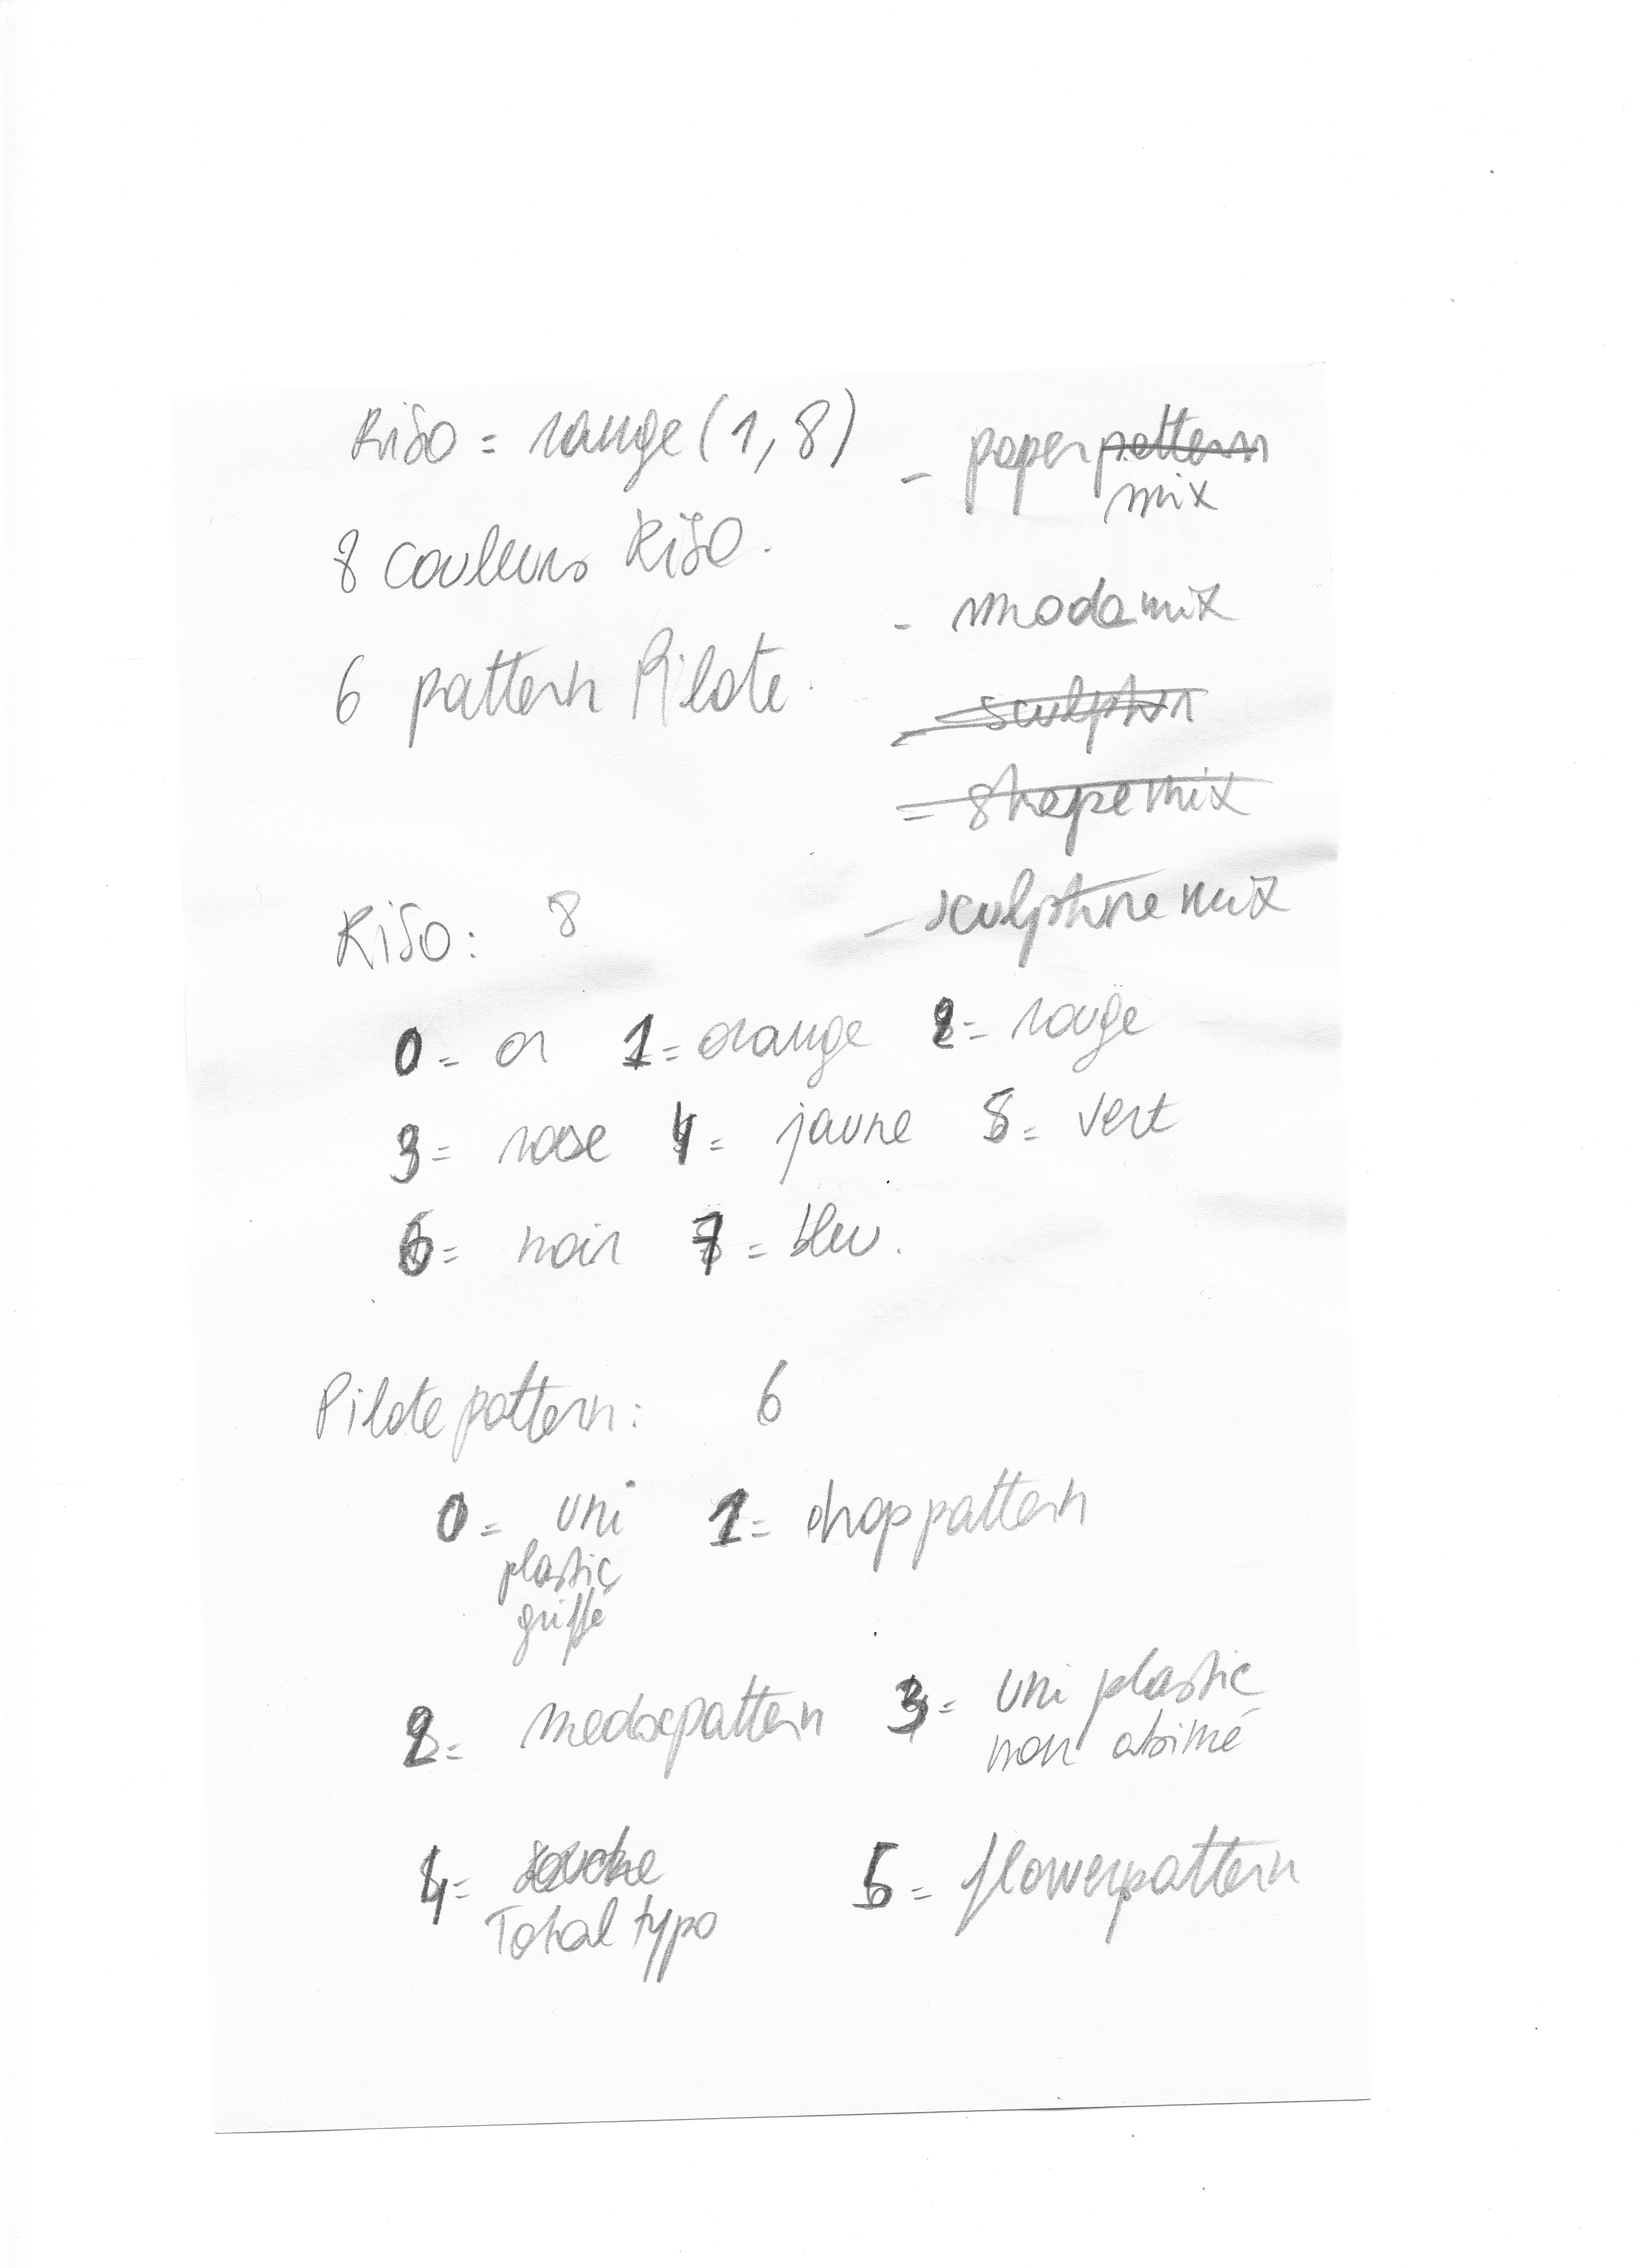 Riso = range(1,8)
8 couleurs Riso.
6 pattern Pilote.
- paperpattern
mix
- modamix
- sculptur
- shapemix
- sculpture mix
Riso: 8
0 = or 1 = orange 2 = rouge
3 = rose 4 = jaune 5 = vert
6 = noir 7 = bleu.
Pilote pattern: 6
0 = uni 1 = drop pattern
plastic
griffé
2 = pattern 3 = uni plastic
non abimé
4 =
Total typo
5 = flowerpattern